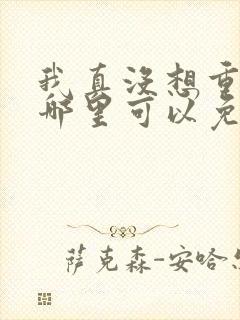 我真没想重
哪里可以免
萨克森-安哈